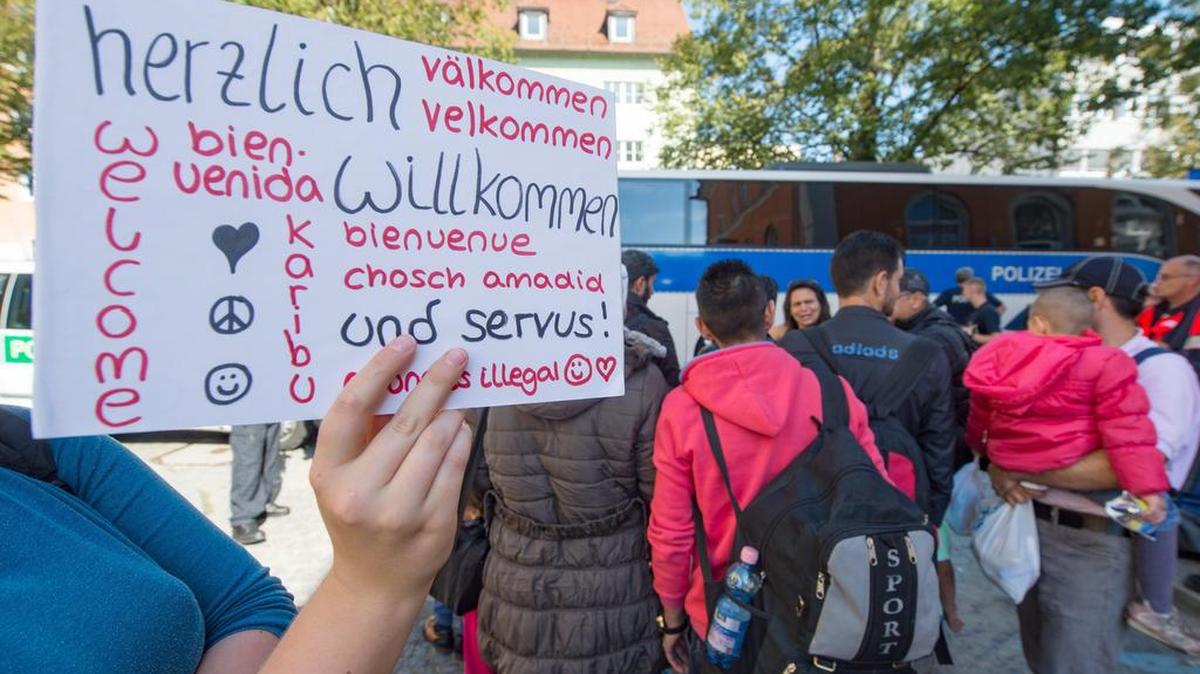 herzlich
välkommen
velkommen
welcome
bien.
venida
willkommen
karibu
bienvenue
chosch amadid
und servus!
illegal
POLIZEI
adidas
SPORT